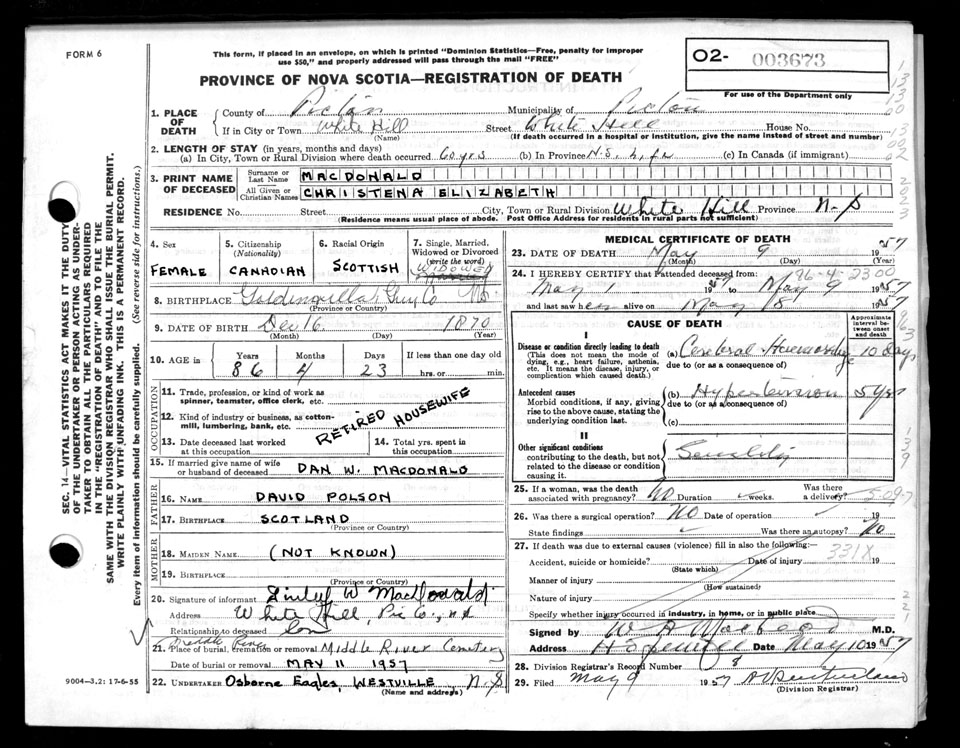 FORM 6
This form, if placed in an envelope, on which is printed "Dominion Statistics—Free, penalty for improper
use $50," and properly addressed will pass through the mail "FREE"
PROVINCE OF NOVA SCOTIA—REGISTRATION OF DEATH
02- 003673
For use of the Department only
1. PLACE OF DEATH
County of Pictou Municipality of Pictou
If in City or Town White Hill Street White Hill House No.
(Name) (If death occurred in a hospital or institution, give the name instead of street and number)
2. LENGTH OF STAY (in years, months and days)
(a) In City, Town or Rural Division where death occurred 60 yrs (b) In Province N.S. Life (c) In Canada (if immigrant)
3. PRINT NAME OF DECEASED
Surname or Last Name MACDONALD
All Given or Christian Names CHRISTENA ELIZABETH
RESIDENCE No. Street City, Town or Rural Division White Hill Province N.S
(Residence means usual place of abode. Post Office Address for residents in rural parts not sufficient)
4. Sex
FEMALE
5. Citizenship
(Nationality)
CANADIAN
6. Racial Origin
SCOTTISH
7. Single, Married,
Widowed or Divorced
(write the word)
WIDOWED
8. BIRTHPLACE Goldenville Guy Co NS
(Province or Country)
9. DATE OF BIRTH Dec 16 1870
(Month) (Day) (Year)
10. AGE in
Years Months Days If less than one day old
86 4 23 hrs. or min.
OCCUPATION
11. Trade, profession, or kind of work as
spinner, teamster, office clerk, etc.
12. Kind of industry or business, as cotton-
mill, lumbering, bank, etc.
RETIRED HOUSEWIFE
13. Date deceased last worked
at this occupation
14. Total yrs. spent in
this occupation
15. If married give name of wife
or husband of deceased DAN W. MACDONALD
FATHER
16. NAME DAVID POLSON
17. BIRTHPLACE SCOTLAND
(Province or Country)
MOTHER
18. MAIDEN NAME (NOT KNOWN)
19. BIRTHPLACE
(Province or Country)
20. Signature of informant W MacDonald
Address White Hill, Pic Co., N.S
Relationship to deceased Son
21. Place of burial, cremation or removal MIDDLE RIVER CEMETERY
Middle River
Date of burial or removal MAY 11 1957
22. UNDERTAKER Osborne Eagles, WESTVILLE N.S
(Name and address)
MEDICAL CERTIFICATE OF DEATH
23. DATE OF DEATH May 9 1957
(Month) (Day) (Year)
24. I HEREBY CERTIFY that I attended deceased from:
86-4-23 00
May 1 1957 to May 9 1957
and last saw her alive on May 8 1957
CAUSE OF DEATH
Approximate
interval be-
tween onset
and death
I
Disease or condition directly leading to death
(This does not mean the mode of
dying, e.g., heart failure, asthenia,
etc. It means the disease, injury, or
complication which caused death.)
(a) Cerebral Haemorrhage 10 Days
due to (or as a consequence of)
Antecedent causes
Morbid conditions, if any, giving
rise to the above cause, stating the
underlying condition last.
(b) Hypertension 5 yrs
due to (or as a consequence of)
(c)
II
Other significant conditions
contributing to the death, but not
related to the disease or condition
causing it.
Senility
25. If a woman, was the death
associated with pregnancy? NO Duration weeks. Was there
a delivery? 5-09-7
26. Was there a surgical operation? NO Date of operation 19
State findings Was there an autopsy? No
27. If death was due to external causes (violence) fill in also the following:
331X
Accident, suicide or homicide? Date of injury 19
(State which)
Manner of injury
(How sustained)
Nature of injury
Specify whether injury occurred in industry, in home, or in public place
Signed by W A MacLeod M.D.
Address Hopewell Date May 10 1957
28. Division Registrar's Record Number 8
29. Filed May 9 1957
(Division Registrar)
SEC. 14—VITAL STATISTICS ACT MAKES IT THE DUTY
OF THE UNDERTAKER OR PERSON ACTING AS UNDER-
TAKER TO OBTAIN ALL THE PARTICULARS REQUIRED
IN THE "REGISTRATION OF DEATH" AND TO FILE THE
SAME WITH THE DIVISION REGISTRAR WHO SHALL ISSUE THE BURIAL PERMIT.
WRITE PLAINLY WITH UNFADING INK. THIS IS A PERMANENT RECORD.
Every item of information should be carefully supplied. (See reverse side for instructions.)
9004—3.2: 17-6-55